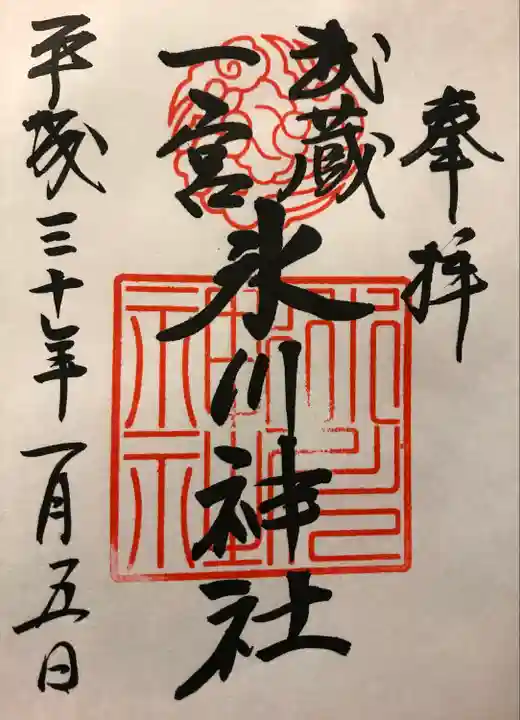 奉拝
武蔵
一宮
氷川神社
平成三十年一月五日
氷川
神社